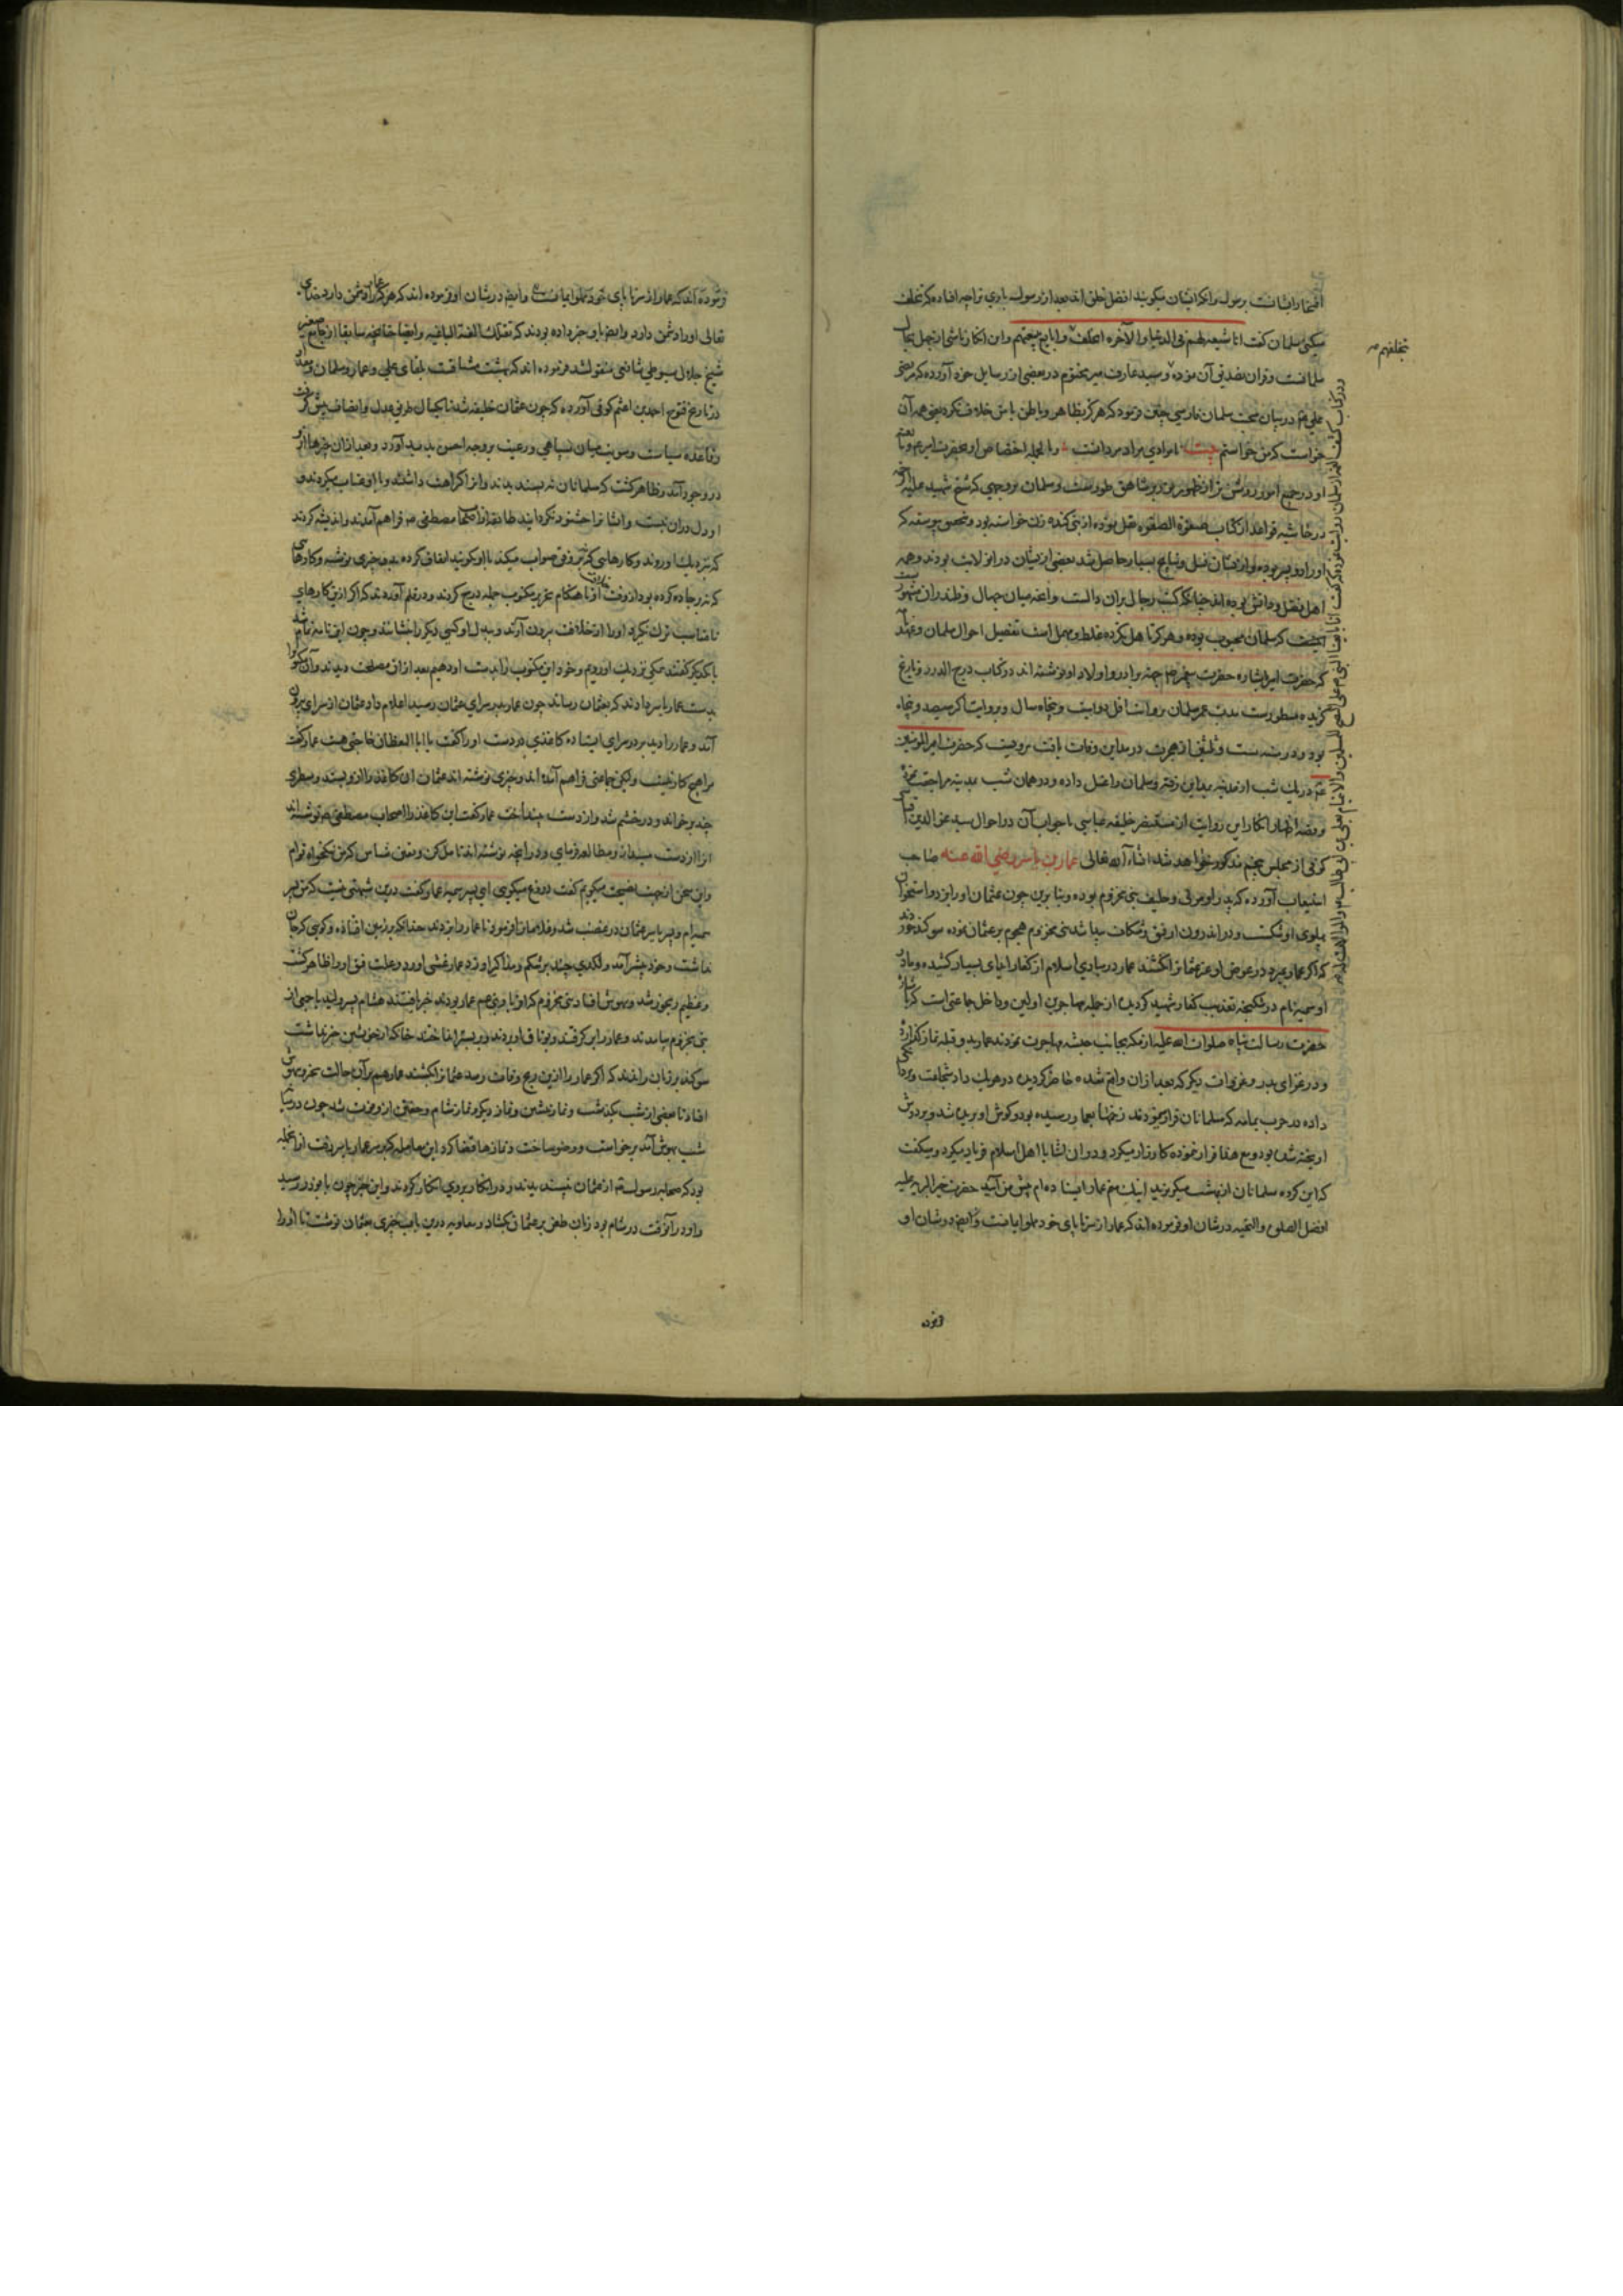 افتخار ایشانست برسول و انکه ایشان میگویند افضل خلق اند بعد از رسول باری ترا چه افتاده که تخلف
میکنی سلمان گفت انا شیعة لهم فی الدنیا والآخرة اتخلف و ابایع ببیعتهم و این انکار ناشی از جهل بحال
سلمانست و سید عارف میر مختوم در بعضی از رسایل خود آورده که مرتضی
علی در بیان محبت سلمان فارسی چنین فرمود که هرگز بظاهر و باطن با من خلاف نکرد یعنی همه آن
خواست که من خواستم بیت نامرادی مراد مردانست و بالجمله اختصاص او بحضرت امیر
او در جمیع امور روشن تر از نظهور نور بر شاهق طورست و سلمان بر وجهی که شیخ شهید علیه الرحمه
در حاشیه قواعد از کتاب صفوة الصفوة نقل نموده از بنی کنده زن خواسته بود و بتحقق پیوسته که
او را دو پسر بوده و از ایشان نسل و نتایج بسیار حاصل شد بعضی از ایشان در ان ولایت بودند و همه
اهل فضل و دانش بوده اند چنانکه کتب رجال بران دالست و آنچه میان جهال و قلندران مشهور
است که سلمان محبوب بوده و هرگز تاهل نکرده غلط و مهمل است تفصیل احوال سلمان و عهد
که حضرت امیر باشاره حضرت پیغمبر جهة برادر و اولاد او نوشته اند در کتاب درج الدرر و تاریخ
گزیده مسطورست مدت عمر سلمان بروایت اقل دویست و پنجاه سال و بروایت اکثر سیصد و پنجاه
بود و در سنه ست و ثلثین از هجرت در مداین وفات یافت مرویست که حضرت امیر المؤمنین
در یک شب از مدینه بمداین رفته و سلمان را غسل داده و در همان شب بمدینه مراجعت نمود
و قصه اظهار انکار این روایت از مستنصر خلیفه عباسی با جواب آن در احوال سید عز الدین
کوفی از مجلس پنجم مذکور خواهد شد انشاء الله تعالی عمار بن یاسر رضی الله عنه صاحب
استیعاب آورده که پدر او مولی و حلیف بنی مخزوم بوده و بنا برین چون عثمان او را بزد و استخوان
پهلوی او شکست و در اندرون او فتق و شکاف پیدا شد بنی مخزوم هجوم بر عثمان نموده سوگند خوردند
که اگر عمار بمیرد در عوض او عثمانرا بکشند عمار در مبادی اسلام از کفار ایذای بسیار کشیده و مادر
او سمیه نام در شکنجه تعذیب کفار شهید گردید از جمله مهاجرین اولین و داخل جماعتی است که باشاره
حضرت رسالت پناه صلوات الله علیه از مکه بجانب حبشه مهاجرت نمودند عمار بدو قبله نماز گذارده
و در غزای بدر و غزوات دیگر که بعد از ان واقع شده حاضر گردید و در هر یک داد شجاعت و مردانگی
داده در حرب یمامه که مسلمانان فرار نمودند زخمها بعمار رسیده بود و گوش او بریده شده و بر دوش
آویخته شده بود و مع هذا فرار ننموده کارزار میکرد و دران اثنا با اهل اسلام فریاد میکرد و میگفت
که ای گروه مسلمانان از بهشت میگریزید اینک منم عمار ایستاده ام پیش من آئید حضرت خیر البریه علیه
افضل الصلوة والتحیه در شان او فرموده اند که عمار از سر تا پای خود مملو ایمانست و ایضا در شان او
فرموده
تتخلفهم
فرموده اند که عمار از سر تا پای خود مملو ایمانست و ایضا در شان او فرموده اند که هر که عمار را دشمن دارد خدای
تعالی او را دشمن دارد و ایضا باو خبر داده بودند که تقتلک الفئة الباغیه و ایضا چنانچه سابقا از جامع صغیر
شیخ جلال سیوطی شافعی منقول شد فرموده اند که بهشت مشتاقست بلقای علی و عمار و سلمان و مقداد
در تاریخ فتوح احمد بن اعثم کوفی آورده که چون عثمان خلیفه شد تا یکسال طریق عدل و انصاف پیش گرفت
و قاعده سیاست و سویت میان سپاهی و رعیت بر وجه احسن پدید آورد و بعد از ان چیزها از او
در وجود آمد و ظاهر گشت که مسلمانان نه پسندیدند و از ان کراهت داشتند و با او عتاب میکردند و
او دل دران نبست و ایشانرا خشنود نگردانید طایفه از اصحاب مصطفی فراهم آمدند و اندیشه کردند
که نزدیک او روند و کارهایی که نه بر وفق صواب میکند با او گویند اتفاق کرده چیزی نوشتند و کارهای
که نه بر جاده کرده بود از وقت خلافت او تا هنگام تحریر مکتوب جمله درج کردند و در قلم آوردند که اگر ازین کارهای
نامناسب ترک نگیرد او را از خلافت بیرون آرند و ببدل او کسی دیگر را بنشانند و چون این نامه تمام شد
با یکدیگر گفتند همگی نزدیک او رویم و خود این مکتوب را بدست او دهیم بعد از ان مصلحت دیدند و آن مکتوب را
بدست عمار یاسر دادند که بعثمان رساند چون عمار بدر سرای عثمان رسید اعلام داد عثمان از سرای بیرون
آمد و عمار را دید بر در سرای ایستاده کاغذی در دست او را گفت یا ابا الیقظان حاجتی هست عمار گفت
مرا هیچ کار نیست ولیکن جماعتی فراهم آمده اند و چیزی نوشته اند عثمان ان کاغذ را از وی بستد و سطری
چند برخواند و در خشم شد و از دست بینداخت عمار گفت این کاغذ را اصحاب مصطفی نوشته اند
انرا از دست مینداز و مطالعه فرمای و در آنچه نوشته اند تامل کن و متیقن شناس که من نیکخواه توام
و این سخن از جهت نصیحت میگویم گفت دروغ میگویی ای پسر سمیه عمار گفت درین شبهتی نیست که من پسر
سمیه ام و پسر یاسر عثمان در غضب شد و غلامانرا فرمود تا عمار را بزدند چنانکه بر زمین افتاد و گویی که جان
نداشت و خود پیش آمد و لگدی چند بر شکم و مذاکیر او زد عمار غشی آورد و علت فتق او را ظاهر گشت
و عظیم رنجور شد و بیهوش افتاد بنی مخزوم که اقربا و بنی عم عمار بودند خبر یافتند هشام پسر ولید با جمعی از
بنی مخزوم بیامدند و عمار را برگرفتند و بوثاق او بردند و بر بستر انداختند چنانکه از خویشتن خبر نداشت
سوگند بر زبان راندند که اگر عمار را ازین رنج وفات رسد عثمانرا بکشند عمار هم بر آن حالت بیخود و بیهوش
افتاد تا بعضی از شب بگذشت و نماز پیشین و نماز دیگر و نماز شام و خفتن از و فوت شد چون در نیمه
شب بهوش آمد برخاست و وضو ساخت و نمازها قضا کرد این معامله که بر عمار یاسر رفت از آنجمله
بود که صحابه رسول از عثمان نپسندیدند و در انکار بروی انکار کردند و این خبر چون با بوذر رسید
و او در آنوقت در شام بود زبان طعن بر عثمان بگشاد و معاویه درین باب چیزی بعثمان نوشت تا او را